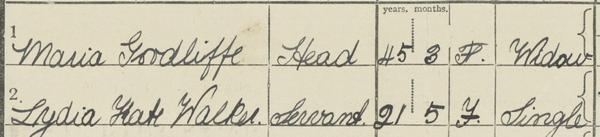 years. months.
1 Maria Goodliffe Head 45 3 F. Widow
2. Lydia Kate Walker. Servant. 21 5 F. Single